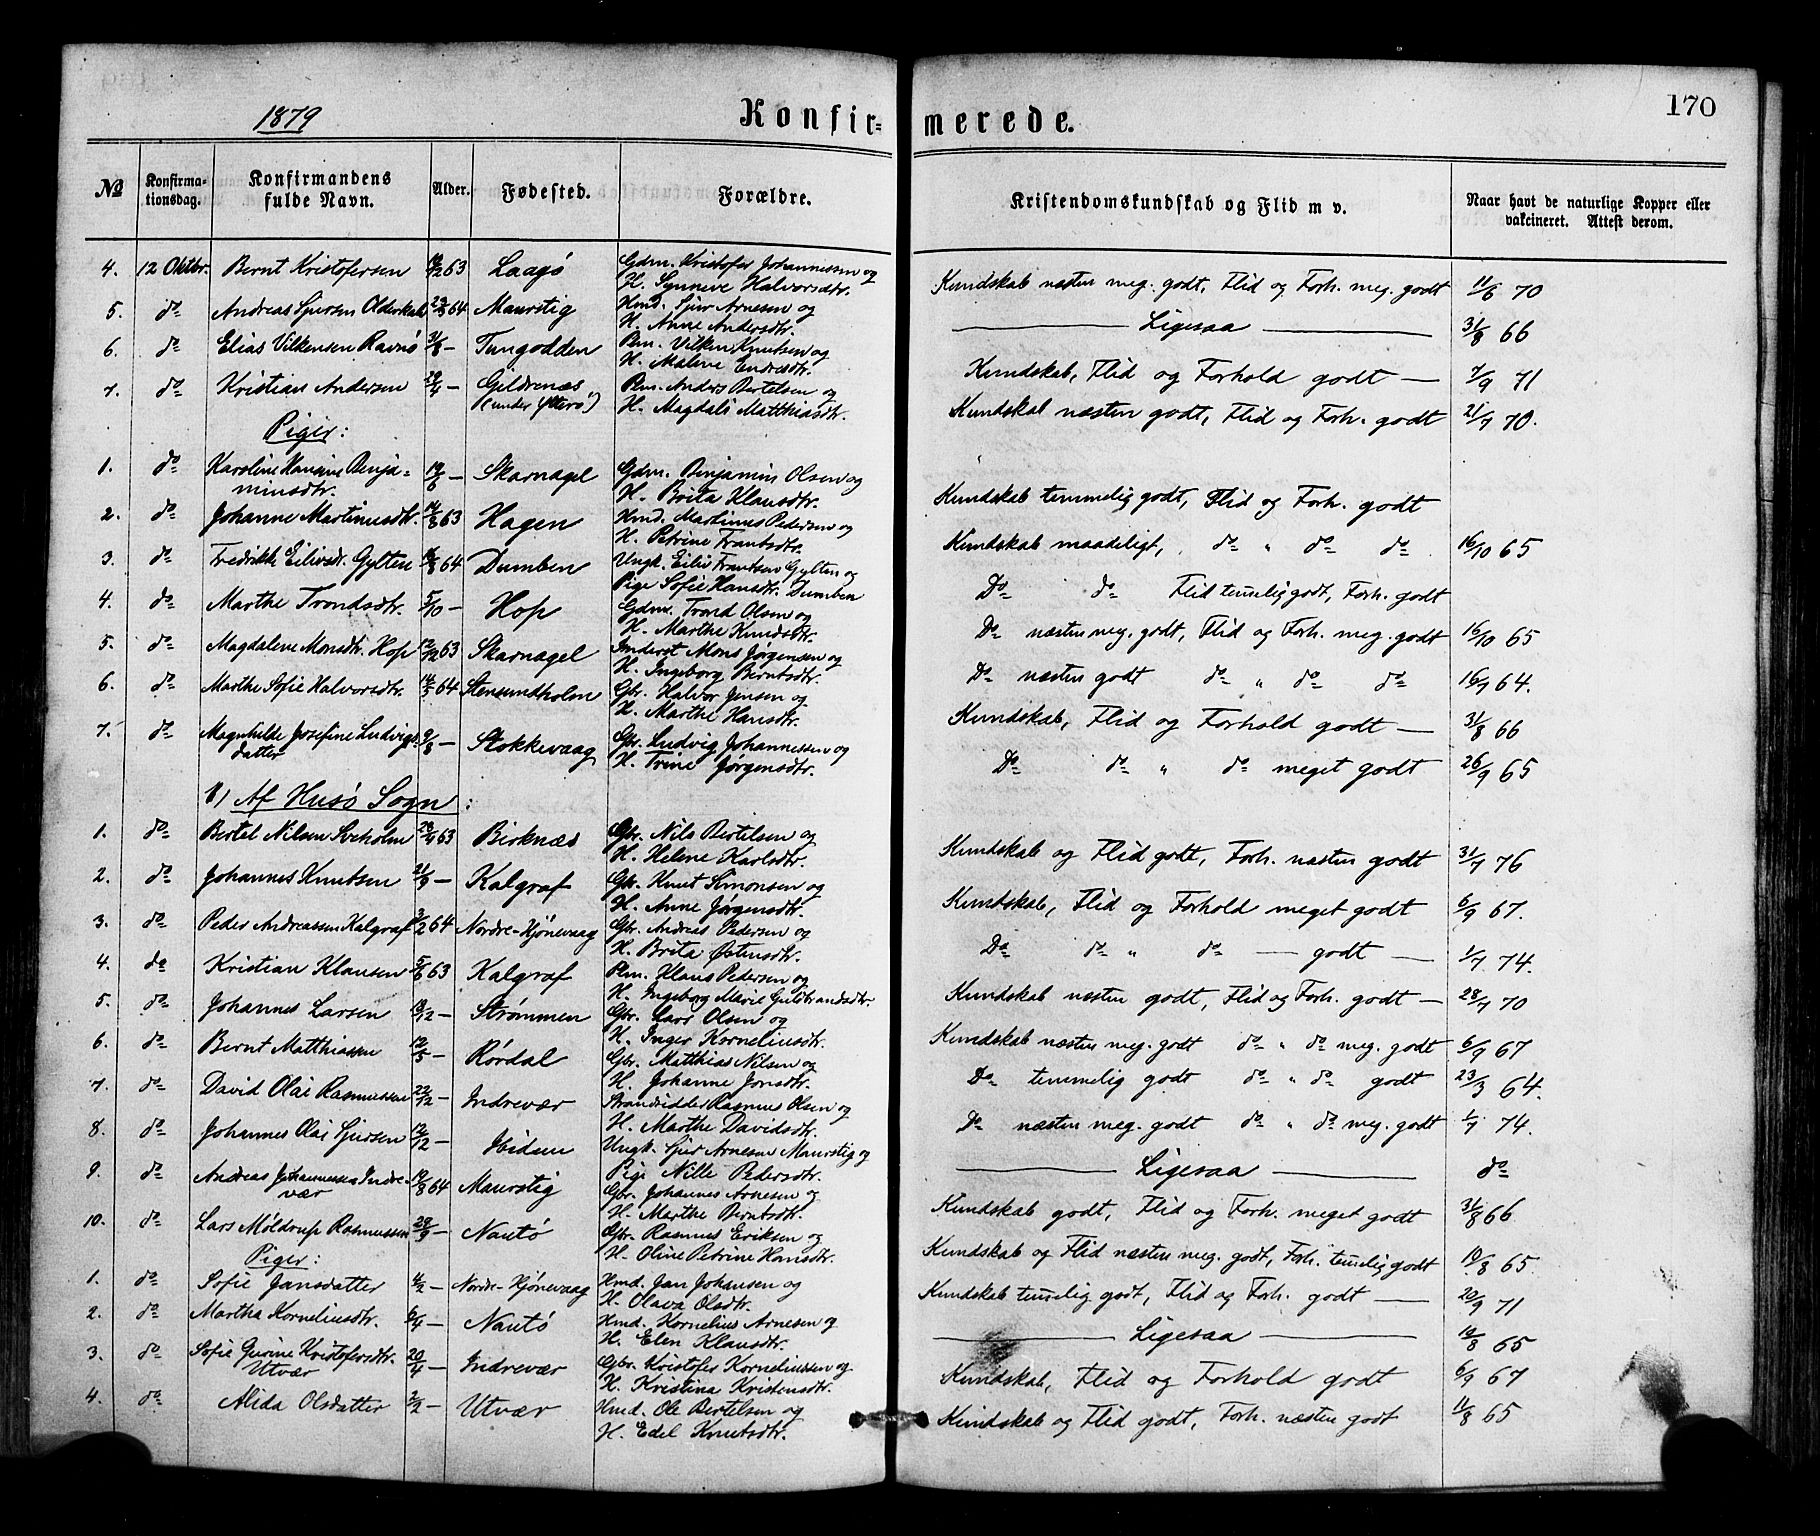 1879
Konfirmerede.
170
No
Konfirmationsdag.
Konfirmandens fulde Navn.
Alder.
Fødested.
Forældre.
Kristendomskundskab og Flid m v.
Naar havt de naturlige Kopper eller vakcineret. Attest derom.
4. 12 Oktbr. Bernt Kristofersen 63 Laagø Gdm. Kristofer Johannessen og H. Synneve Halvorsdtr. Kundskab næsten meg. godt, Flid og Forh. meg. godt 11/6 70
5. do Andreas Sjursen 64 Maurstig Hmd. Sjur Arnesen og H. Anne Andersdtr. Ligesaa 31/8 66
6. do Elias Vilkensen Ravnø 31/8 — Tungodden Pem. Vilken Knutsen og H. Malene Endresdtr. Kundskab, Flid og Forhold godt — 7/9 71
7. do Kristian Andersen 29/4 — Geldrenæs (under Ytterø) Pem. Anders Bertelsen og H. Magdali Matthiasdtr. Kundskab næsten godt, Flid og Forh. godt 21/7 70.
Piger:
1. do Karoline Hansine Benjaminsdtr. 19/6 — Skarnagel Gdm. Benjamin Olsen og H. Brita Klausdtr. Kundskab temmelig godt, Flid og Forh. godt
2. do Johanne Martinusdtr. 63 Hagen Hmd. Martinus Pedersen og H. Petrine Frantsdtr. Kundskab maadeligt, do " do do 16/10 65
3. do Fredrikke Eilivsdt. Gylten 64 Dumben Ungk. Eiliv Frantsen Gylten og Pige Sofie Hansdtr. Dumben Do do Flid temelig godt, Forh. godt
4. do Marthe Trondsdtr. 5/10 — Hop Gdm. Trond Olsen og H. Marthe Knudsdtr. Do næsten meg. godt, Flid og Forh. meg. godt 16/10 65
5. do Magdalene Monsdtr. Hop 12/12 63 Skarnagel Inderst Mons Jørgensen og H. Ingeborg Berntsdtr. Do næsten godt do " do do 16/7 64.
6. do Marthe Sofie Halvorsdtr. 14/5 64 Stensundholm Gbr. Halvor Jensen og H. Marthe Hansdtr. Kundskab, Flid og Forhold godt — 31/8 66
7. do Magnhilde Josefine Ludvigsdatter 9/8 — Stokkevaag Gbr. Ludvig Johannessen og H. Trine Jørgensdtr. Do do " do meget godt 26/9 65
Af Husø Sogn:
1. do Bertel Nilsen Sveholm 28/9 63 Birknæs Gbr. Nils Bertelsen og H. Helene Karlsdtr. Kundskab og Flid godt, Forh. næsten godt 31/7 76
2. do Johannes Knutsen 21/9 — Kalgraf Gbr. Knut Simonsen og H. Anne Jørgensdtr. Kundskab, Flid og Forhold meget godt 6/9 67.
3. do Peder Andreassen Kalgraf 3/2 64 Nordre-Hjønevaag Gbr. Andreas Pedersen og H. Brita Østensdtr. Do do " do — godt — 1/7 74.
4. do Kristian Klausen 5/6 63 Kalgraf Pem. Klaus Pedersen og H. Ingeborg Marie Gulbrandsdtr. Kundskab næsten godt, Flid og Forh. godt — 28/7 70
5. do Johannes Larsen 18/12 — Strømmen Gbr. Lars Olsen og H. Inger Korneliusdtr. Kundskab næsten meg. godt do " do meg. godt 6/9 67
6. do Bernt Matthiassen 12/5 — Rørdal Gbr. Matthias Nilsen og H. Johanne Jonsdtr. Do temmelig godt do " do godt 23/3 64.
7. do David Olai Rasmussen 22/12 — Indrevær Strandsidder Rasmus Olsen og H. Marthe Davidsdtr. Do næsten meg. godt do " do meg. godt 1/7 74.
8. do Johannes Olai Sjursen 12/12 — Ibidem Ungk. Sjur Arnesen Maurstig og Pige Nille Pedersdtr. Ligesaa do
9. do Andreas Johannessen Indrevær 64 Maurstig Gbr. Johannes Arnesen og H. Marthe Berntsdtr. Kundskab godt, Flid og Forh. meget godt 31/8 66
10. do Lars Møldrup Rasmussen 28/9 — Nautø Gbr. Rasmus Eriksen og H. Oline Petrine Hansdtr. Kundskab og Flid næsten meg. godt, Forh. temelig godt 10/8 65.
Piger:
1. do Sofie Jansdatter 4/2 — Nordre-Hjønevaag Hmd. Jan Johansen og H. Olava Olsdtr. Kundskab temelig godt, Flid og Forh. godt — 20/9 71
2. do Martha Korneliusdtr. 6/4 — Nautø Hmd. Kornelius Arnesen og H. Elen Klausdtr. Ligesaa 65
3. do Sofie Gurine Kristofersdtr. Utvær 20/4 — Indrevær Gbr. Kristofer Korneliussen og H. Kristina Kristensdtr. Kundskab, Flid og Forhold godt 6/9 67
4. do Alida Olsdatter 2/2 — Utvær Hmd. Ole Bertelsen og H. Edel Knutsdtr. Kundskab og Flid godt, Forh. næsten godt 11/8 65